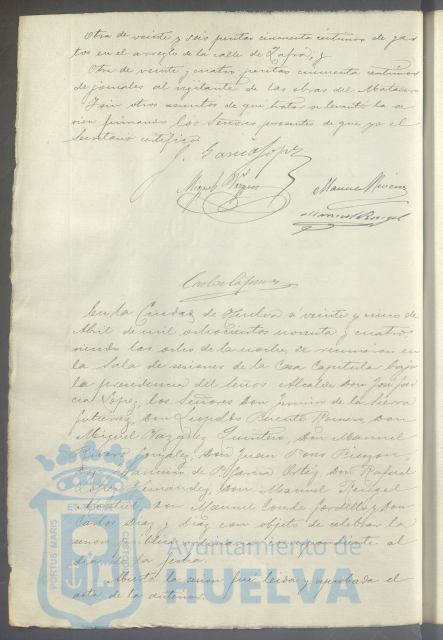 Otra de veinte y seis pesetas cincuenta céntimos de gas
tos en el arreglo de la calle de Zafra, y
Otra de veinte y cuatro pesetas cincuenta céntimos
de jornales al vigilante de las obras del Matadero
Y sin otros asuntos de que tratar se levantó la se
sion firmando los Señores presentes de que yo el
Secretario certifico
J. García López
Miguel Vazquez
Manuel
Manuel
En la Ciudad de Huelva a veinte y cinco de
Abril de mil ochocientos noventa y cuatro,
siendo las ocho de la noche, se reunieron en
la Sala de sesiones de la Casa Capitular bajo
la presidencia del Señor Alcalde Don José Gar
cia Lopez, los Señores Don Justo de la Sierra
Gutierrez, Don Leopoldo Puente Romero, Don
Miguel Vazquez Quintero, Don Manuel
Gonzalez, Don Juan Pons
Don de P. García Ortiz, Don Rafael
Lopez Hernandez, Don Manuel
Don Manuel Conde Jordillo y Don
Carlos Diaz y Diaz con objeto de celebrar la
sesion pública ordinaria correspondiente al
dia de la fecha.
Abierta la sesion fue leida y aprobada el
acta de la anterior.
PORTUS MARIS ET TERRAE CUSTODIA
Ayuntamiento de
HUELVA